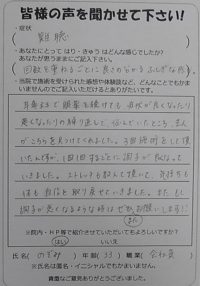 皆様の声を聞かせて下さい!
・症状
難聴
・あなたにとって はり・きゅう はどんな感じでしたか?
あなたが思うままにご記入下さい。
回数を重ねるごとに良さの分かるふしぎな感じ
・当院で施術を受けられた感想や体験談など、どんなことでもかまいませんのでご記入いただけるとありがたいです。
耳鼻科で 服薬を続けても 症状が良くなったり
悪くなったりの繰り返しで、悩んでいたところ、
がこちらを見つけてくれました。3回施術をして頂
いたんですが、1回1回するごとに調子が良くなって
いきました。ストレッチも教えて頂いて、気持ちも
体も自信を取り戻せていきました。また、もし
調子が悪くなるような時はぜひお願いします!!
また
※院内・HP等で紹介させていただいてもよろしいですか?
はい いいえ
氏名( のぞみ ) 年齢( 33 ) 職業( 会社員 )
※氏名は匿名・イニシャルでもかまいません。
貴重なご意見ありがとうございました。